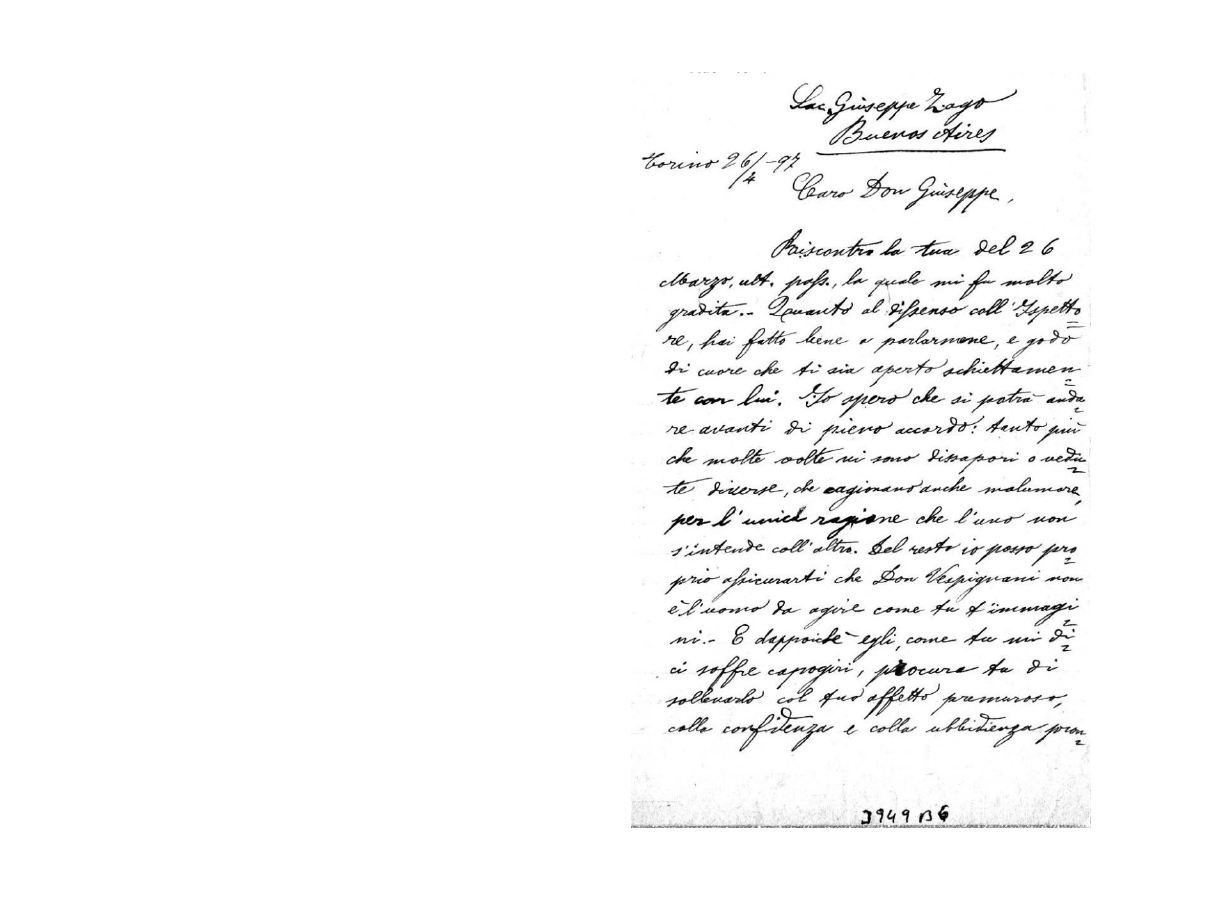 Sac. Giuseppe Zago
Buenos Aires
Torino 26/4 -97
Caro Don Giuseppe,
Riscontro la tua del 26
Marzo, ult. pass., la quale mi fu molto
gradita.- Quanto al dissenso coll'Ispetto=
re, hai fatto bene a parlarmene, e godo
di cuore che ti sia aperto schiettamen=
te con lui. Io spero che si potrà anda=
re avanti di pieno accordo: tanto più
che molte volte vi sono dissapori o vedu=
te diverse, che cagionano anche malumore,
per l'unica ragione che l'uno non
s'intende coll'altro. Del resto io posso pro=
prio assicurarti che Don Vespignani non
è l'uomo da agire come tu t'immagi=
ni.- E dappoichè egli, come tu mi di=
ci soffre capogiri, procura tu di
sollevarlo col tuo affetto premuroso,
colla confidenza e colla ubbidienza pron=
3949 B6